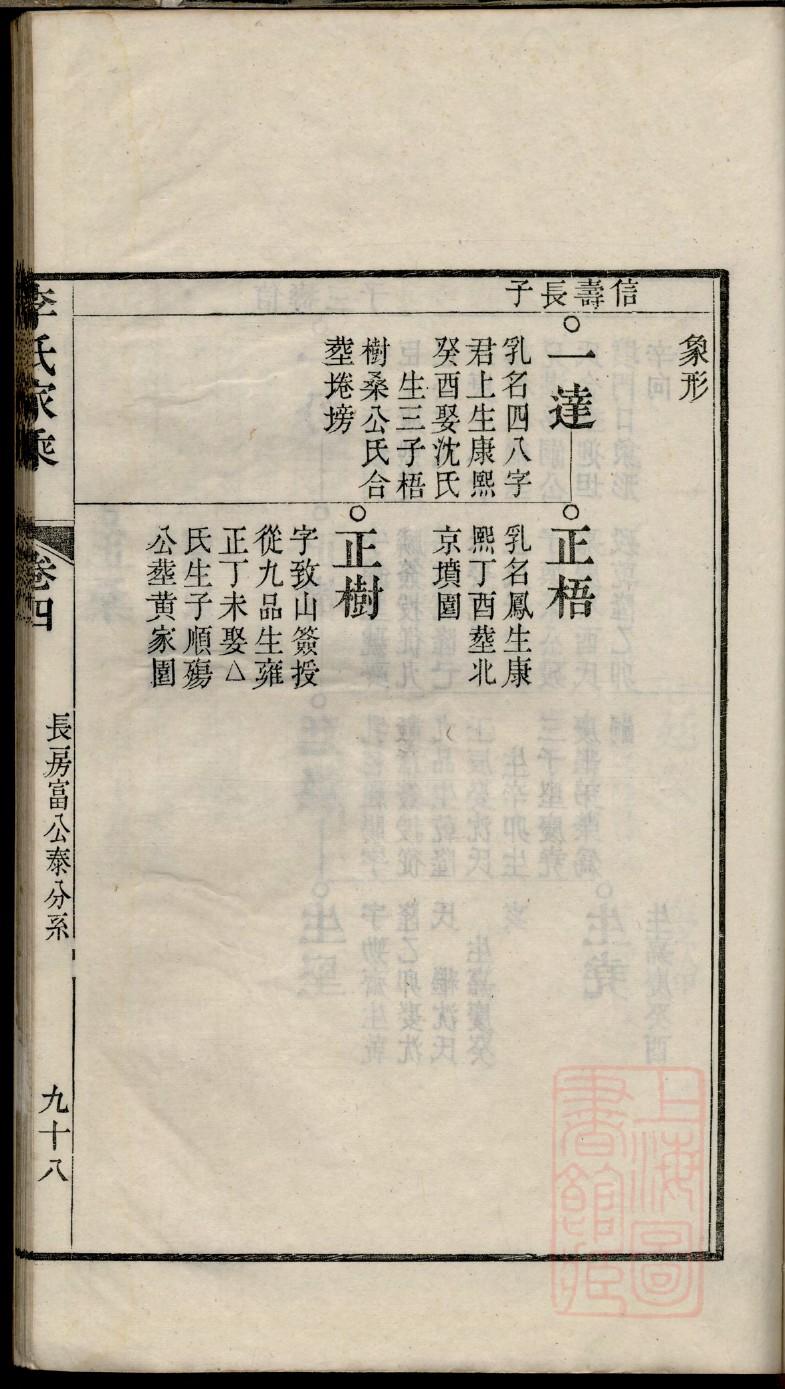 象形
信壽長子
一達
乳名四八字
君上生康熙
癸酉娶沈氏
生三子梧
樹桑公氏合
塟埢塝
正梧
乳名鳳生康
熙丁酉塟北
京墳園
正樹
字致山簽授
從九品生雍
正丁未娶△
氏生子順殤
公塟黄家園
李氏家乘
卷四
長房富公泰分系
九十八
上海圖書館藏